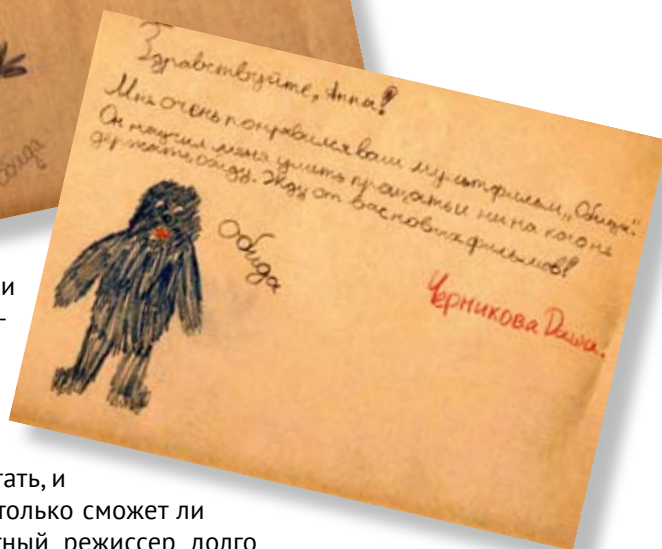 Здравствуйте, Анна!
Мне очень понравился ваш мультфильм „Обида".
Он научил меня уметь прощать и ни на кого не
держать обиду. Жду от вас новых фильмов!
Обида
Черникова Даша.
Обида
и
–
тать, и
только сможет ли
тный режиссер долго